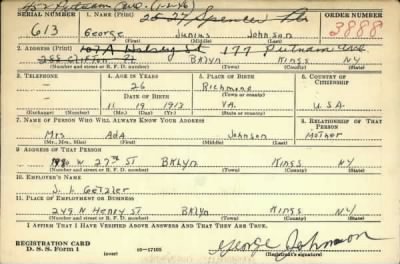 452 Putnam Ave. (1-1-46)
SERIAL NUMBER 1. NAME (Print) 20-27 Spencer Pl ORDER NUMBER
613 George Junius Johnson 3888
(First) (Middle) (Last)
2. ADDRESS (Print) 107A Halsey St 177 Putnam Ave
255 Clifton Pl BKLYN KINGS NY
(Number and street or R. F. D. number) (Town) (County) (State)
3. TELEPHONE 4. AGE IN YEARS 5. PLACE OF BIRTH 6. COUNTRY OF CITIZENSHIP
26 Richmond
DATE OF BIRTH
11 19 1913 VA. U.S.A.
(Exchange) (Number) (Mo.) (Day) (Yr.) (State or country)
7. NAME OF PERSON WHO WILL ALWAYS KNOW YOUR ADDRESS 8. RELATIONSHIP OF THAT PERSON
Mrs Ada Johnson Mother
(Mr., Mrs., Miss) (First) (Middle) (Last)
9. ADDRESS OF THAT PERSON
W 27th ST BKLYN KINGS NY
(Number and street or R. F. D. number) (Town) (County) (State)
10. EMPLOYER'S NAME
J. I. Getzler
11. PLACE OF EMPLOYMENT OR BUSINESS
248 N HENRY ST BKLYN KINGS NY
(Number and street or R. F. D. number) (Town) (County) (State)
I AFFIRM THAT I HAVE VERIFIED ABOVE ANSWERS AND THAT THEY ARE TRUE.
REGISTRATION CARD
D. S. S. Form 1 (over) 16-17105 George Johnson
(Registrant's signature)